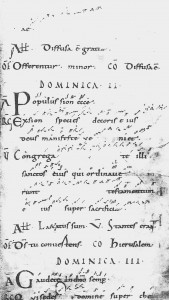 All Diffusa ē grati
OF Offerentur minor. CO Diffusa ē
DOMINICA II
A Populussion ecce
RG Exsion species decoris eius
deus manifeste ve niet
V Congrega te illi
sanctos eius qui ordinaue
runt testamentum
e ius super sacrifici
All Laetatus sum V Stantes erant
OF Ds tu conuertens CO Hierusalem
DOMINICA III
A Gaudete semp
RG Qui sedes domine super che